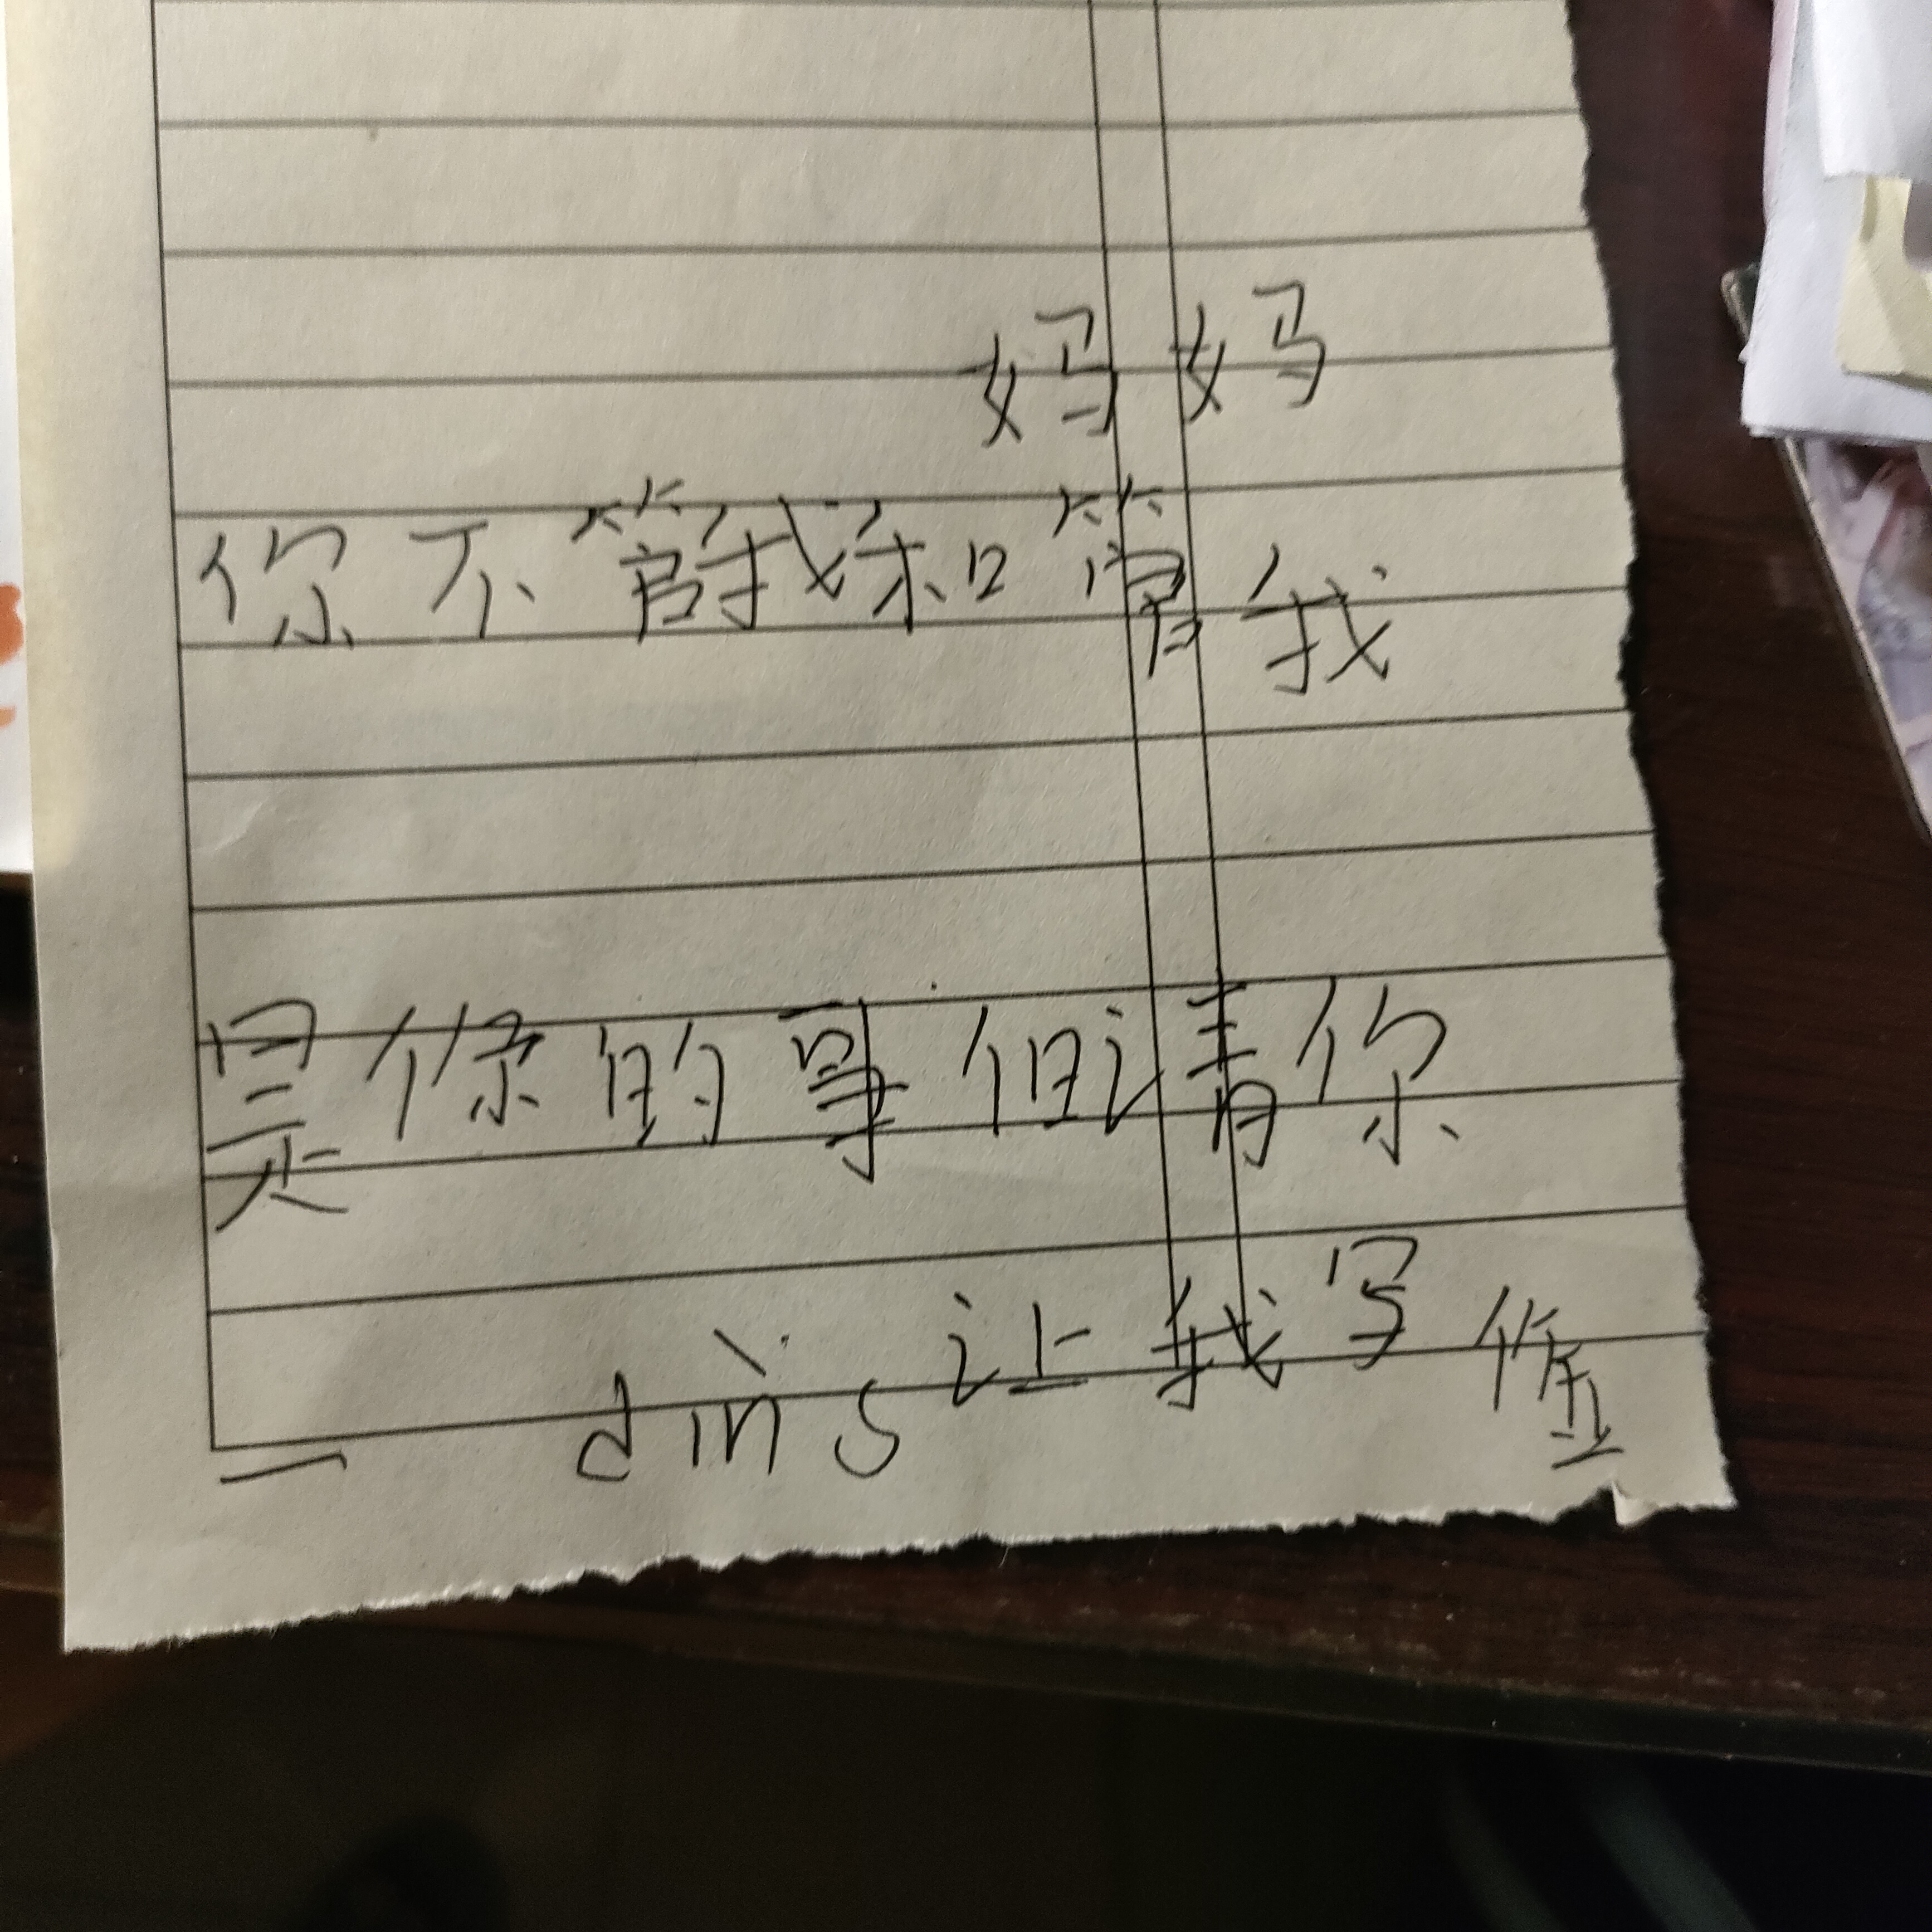 妈妈
你不管我和管我
是你的事但请你
一dìng让我写作业